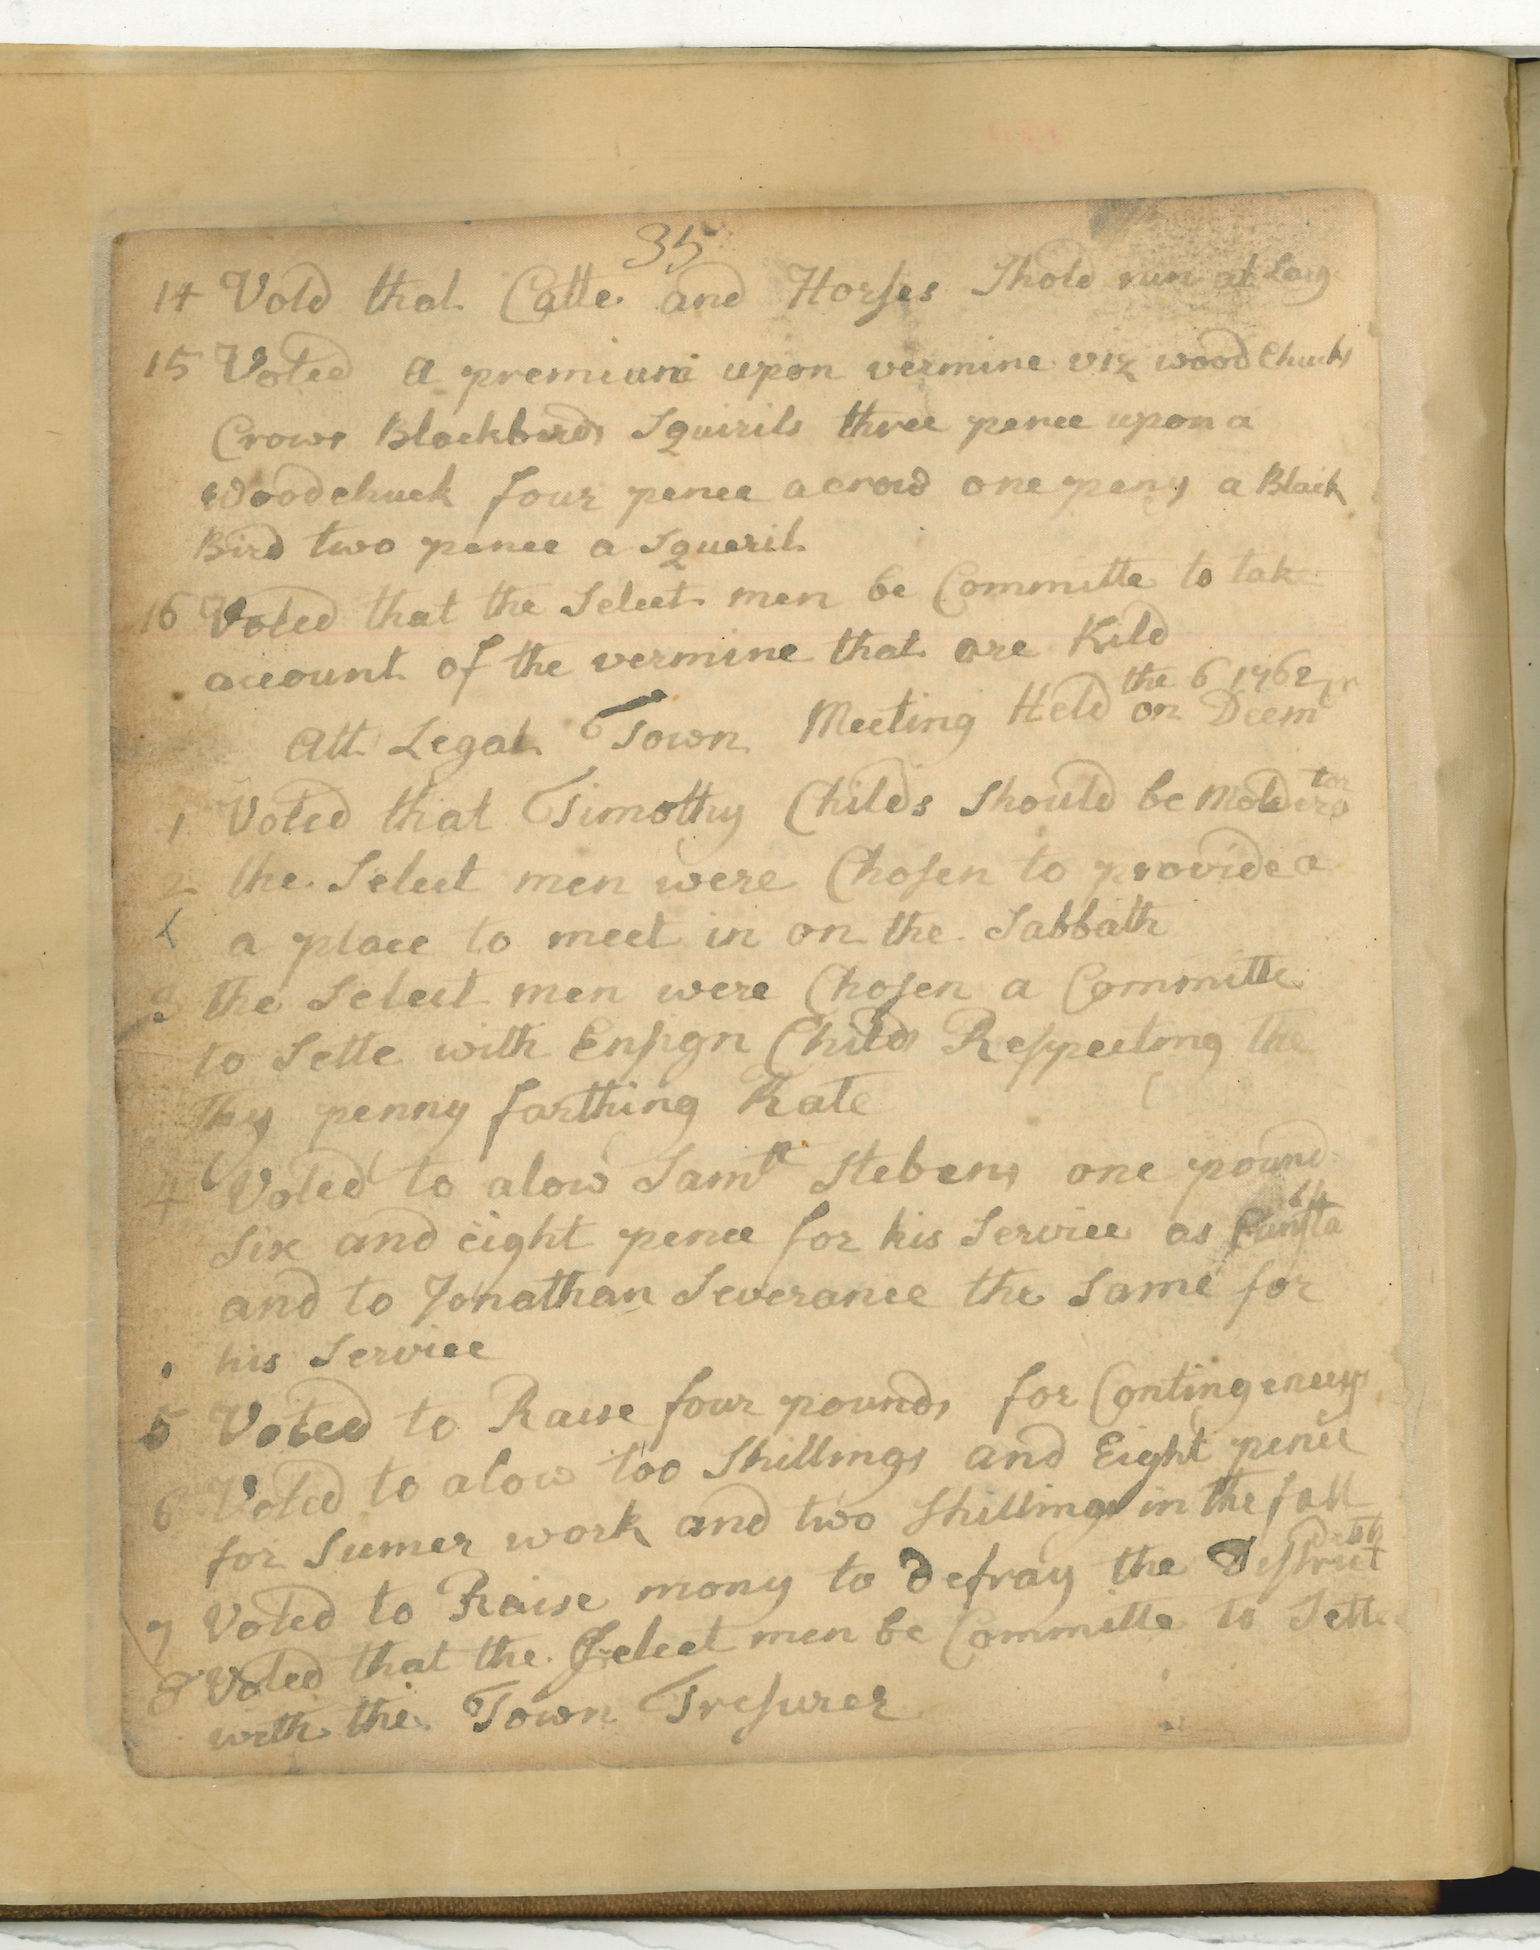 35
14 Voted that Catte and Horses Shold run at Larg
15 Voted a premium upon vermine viz wood Chucks
Crows Blackbirds Squirils three pence upon a
woodchuck four pence a crow one peny a Black
Bird two pence a Squeril
16 Voted that the Select men be Committe to tak
account of the vermine that are Kild
the 6 1762
Att Legal Town Meeting Held on Decmr
1 Voted that Timothy Childs Should be Moderator
2 the Select men were Chosen to provide a
a place to meet in on the Sabbath
3 the Select men were Chosen a Committe
to Sette with Ensign Childs Respecting the
penny farthing Rate
4 Voted to alow Samll Stebens one pound
Six and eight pence for his Service as Cunstabl
and to Jonathan Severance the Same for
his Service
5 Voted to Raise four pounds for Contingencys
6 Voted to alow too Shillings and Eight pence
for Sumer work and two Shillings in the fall
7 Voted to Raise mony to Defray the District Debt
8 Voted that the Select men be Committe to Sett
with the Town Tresurer